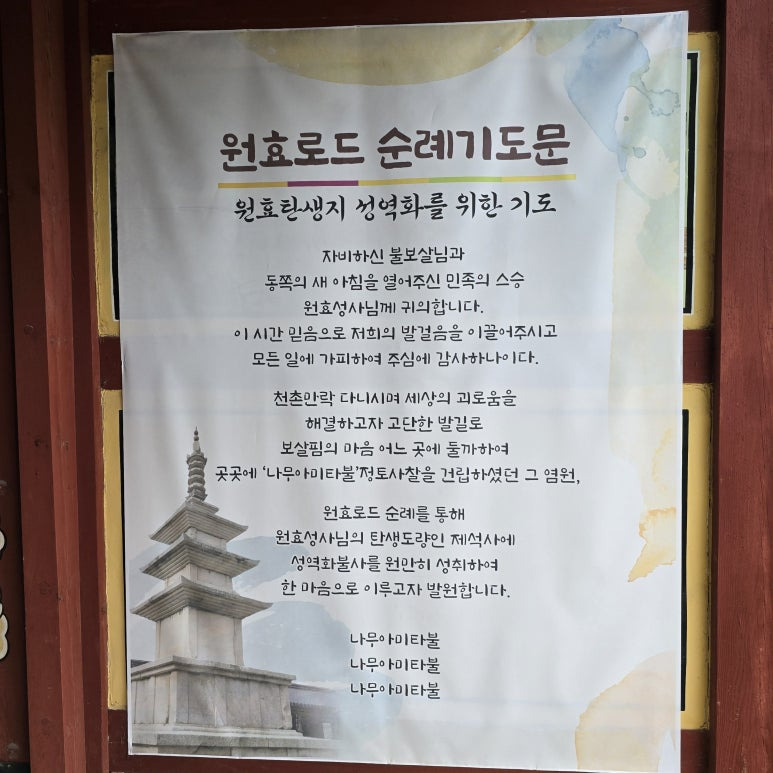 원효로드 순례기도문
원효탄생지 성역화를 위한 기도
자비하신 불보살님과
동쪽의 새 아침을 열어주신 민족의 스승
원효성사님께 귀의합니다.
이 시간 믿음으로 저희의 발걸음을 이끌어주시고
모든 일에 가피하여 주심에 감사하나이다.
천촌만락 다니시며 세상의 괴로움을
해결하고자 고단한 발길로
보살핌의 마음 어느 곳에 둘까하여
곳곳에 ‘나무아미타불’정토사찰을 건립하셨던 그 염원,
원효로드 순례를 통해
원효성사님의 탄생도량인 제석사에
성역화불사를 원만히 성취하여
한 마음으로 이루고자 발원합니다.
나무아미타불
나무아미타불
나무아미타불